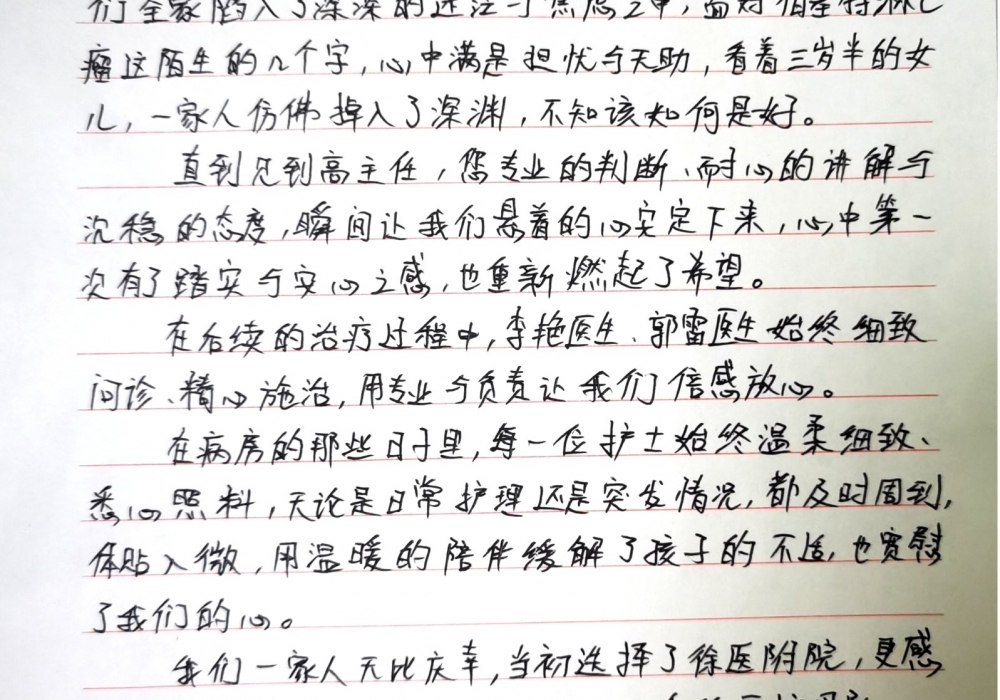 们全家陷入了深深的迷茫与焦虑之中，面对伯基特淋巴
瘤这陌生的几个字，心中满是担忧与无助，看着三岁半的女
儿，一家人仿佛掉入了深渊，不知该如何是好。
直到见到高主任，您专业的判断、耐心的讲解与
沉稳的态度，瞬间让我们悬着的心安定下来，心中第一
次有了踏实与安心之感，也重新燃起了希望。
在后续的治疗过程中，李艳医生、郭雷医生始终细致
问诊、精心施治，用专业与负责让我们倍感放心。
在病房的那些日子里，每一位护士始终温柔细致、
悉心照料，无论是日常护理还是突发情况，都及时周到，
体贴入微，用温暖的陪伴缓解了孩子的不适，也宽慰
了我们的心。
我们一家人无比庆幸，当初选择了徐医附院，更感